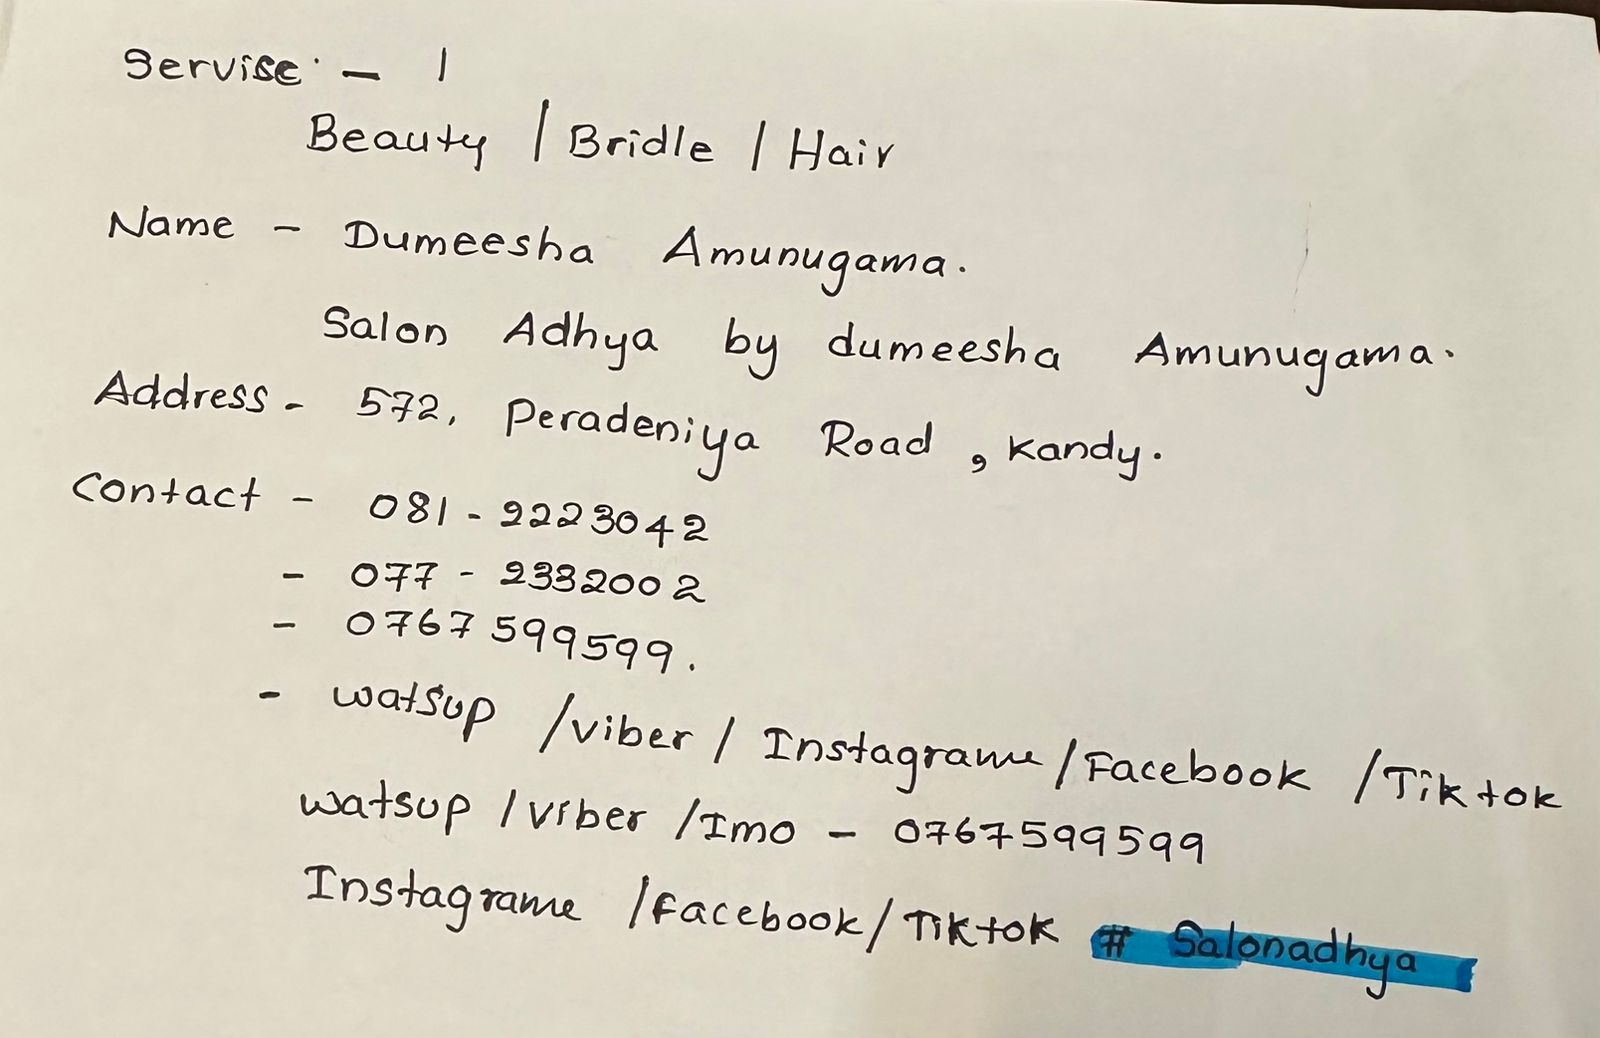 Servise - 1
Beauty / Bridle / Hair
Name - Dumeesha Amunugama.
Salon Adhya by dumeesha Amunugama.
Address - 572, Peradeniya Road, Kandy.
Contact - 081 - 2223042
- 077 - 2332002
- 0767 599599.
- watsup / viber / Instagrame / Facebook / Tiktok
watsup / Viber / Imo - 0767599599
Instagrame / Facebook / Tiktok # Salonadhya